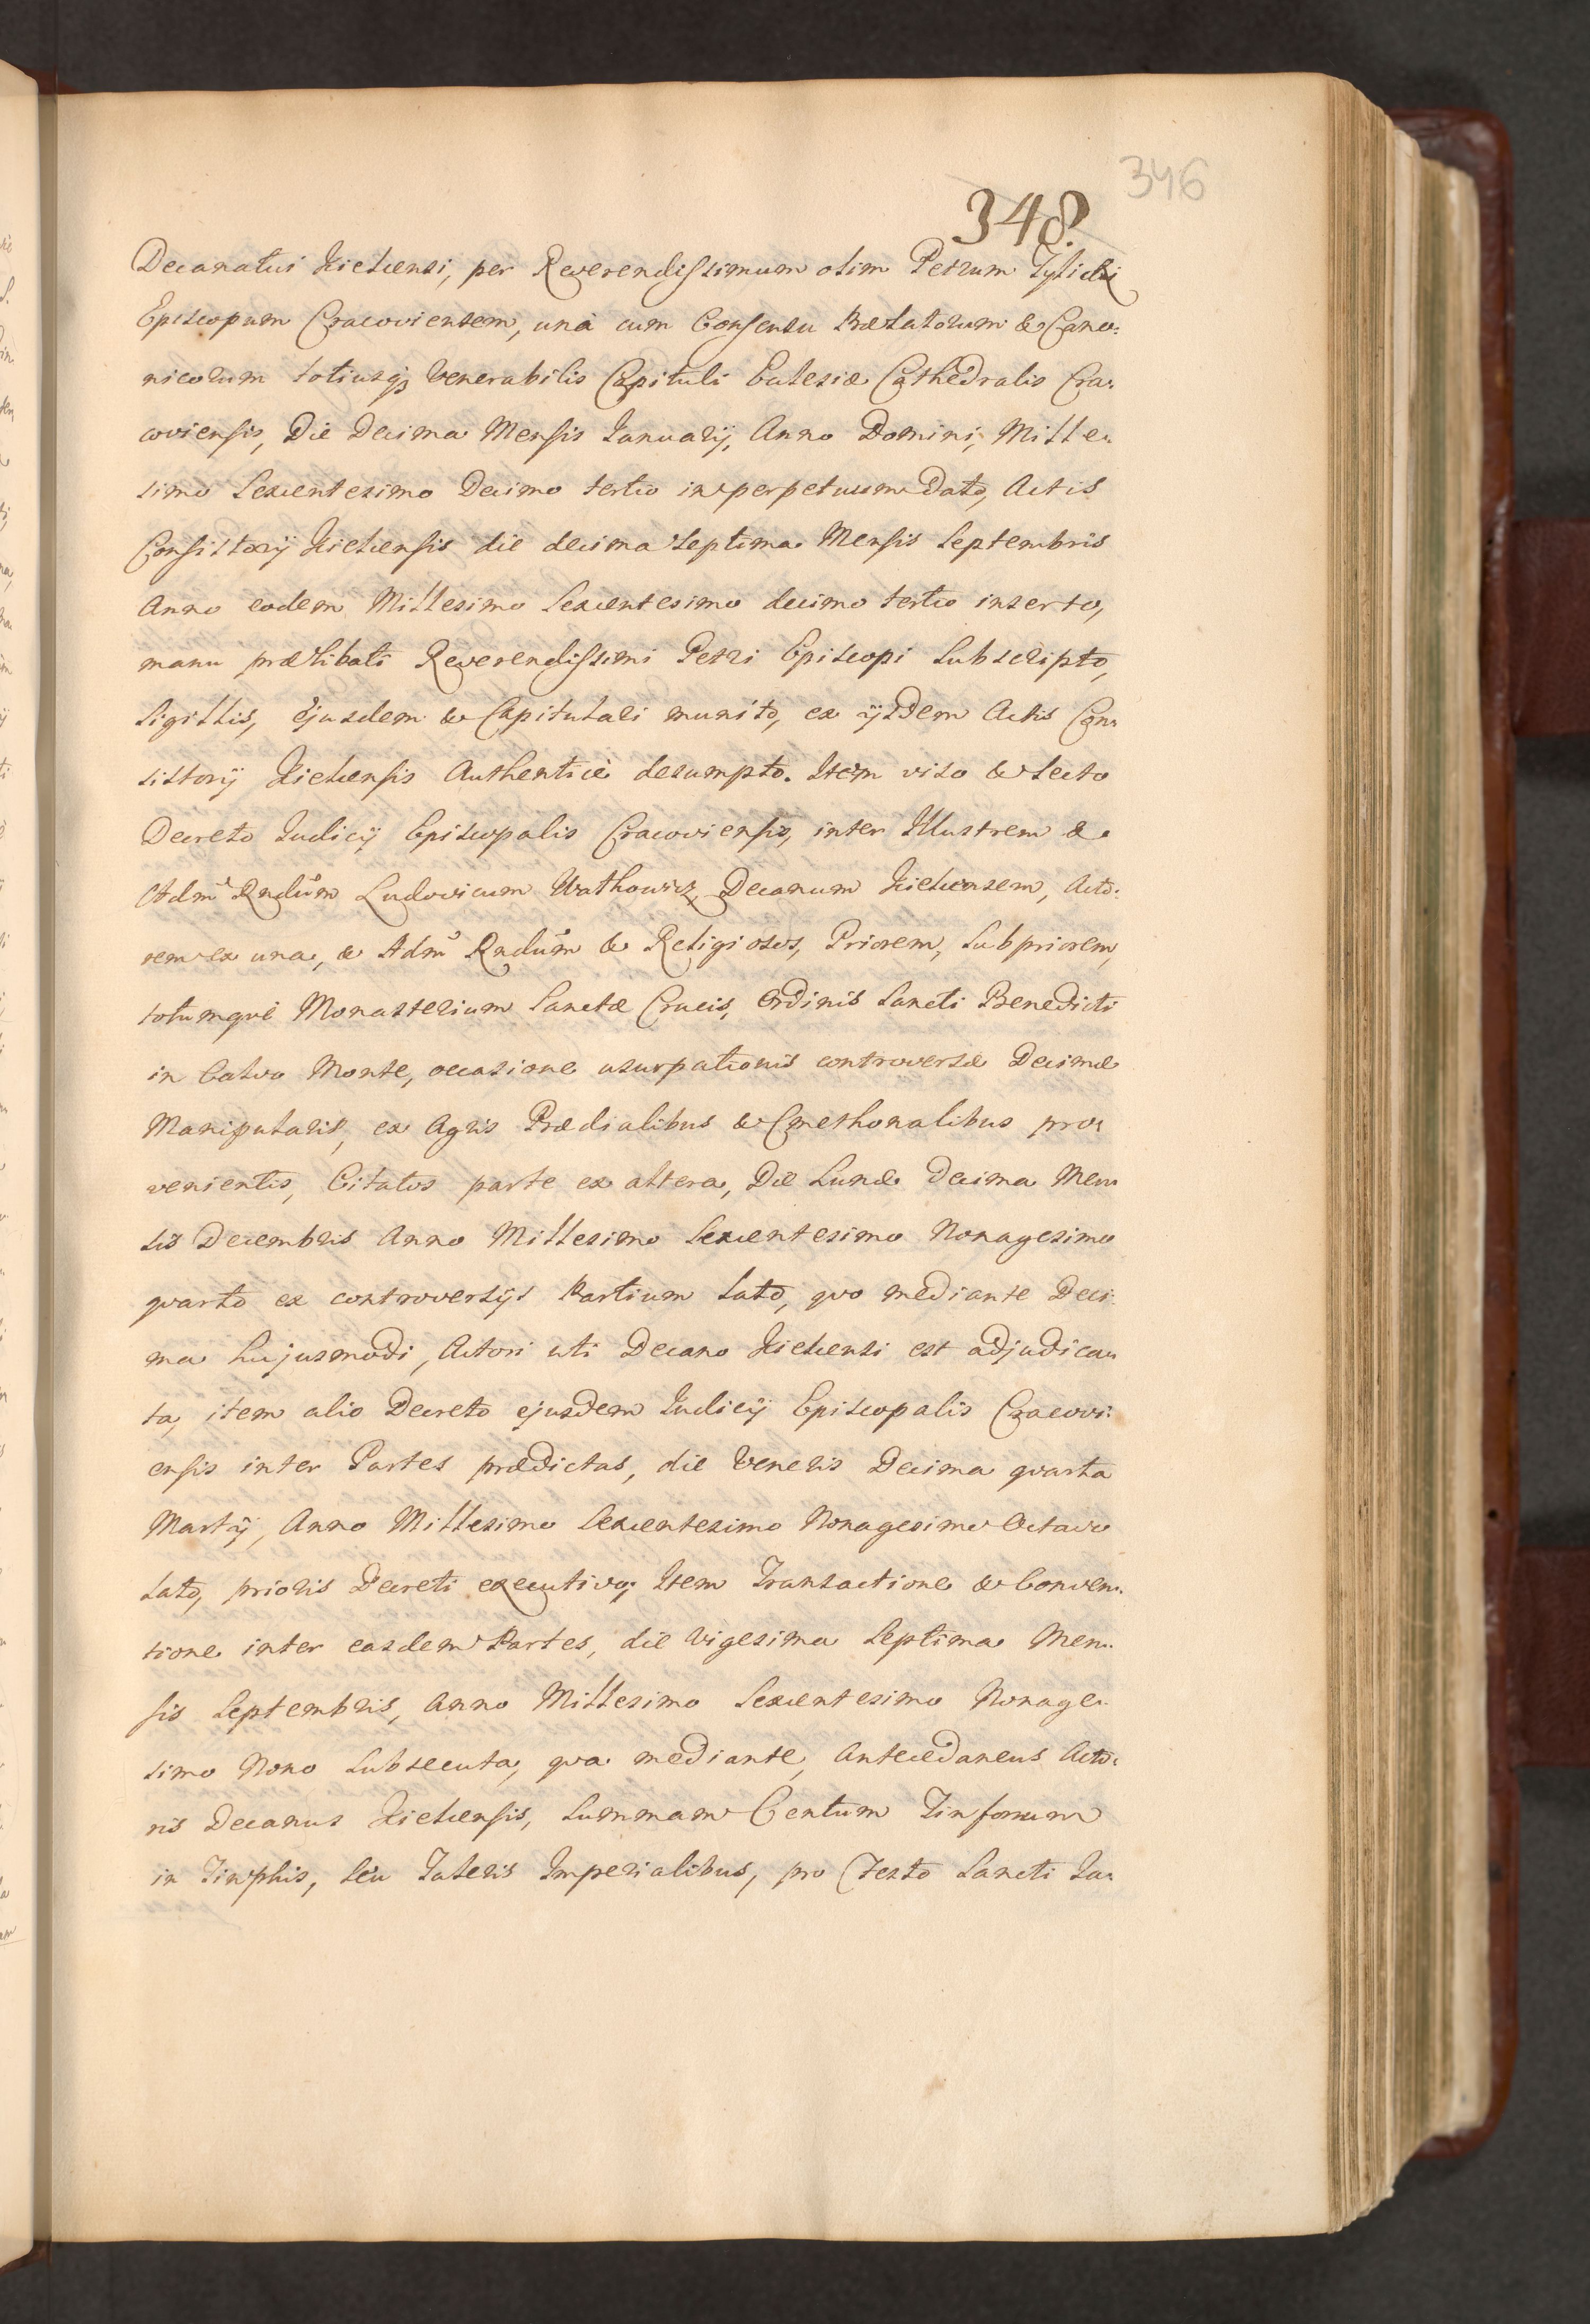 346
348.
Decanatui Kielcensi, per Reverendissimum olim Petrum Tylicki
Episcopum Cracoviensem, unà cum Consensu Prælatorum & Cano:
nicorum totiusq; Venerabilis Capituli Eclesiæ Cathedralis Cra:
coviensis, Die Decima Mensis Januarij, Anno Domini, Mille:
simo Sexcentesimo Decimo tertio in perpetuum Dato, Actis
Consistorij Kielcensis die decima Septima Mensis Septembris
Anno eodem Millesimo Sexcentesimo decimo tertio inserto,
manu prælibati Reverendissimi Petri Episcopi Subscripto,
Sigillis, Ejusdem & Capitulari munito, ex ijsdem Actis Con:
sistorij Kielcensis Authenticè desumpto. Item viso & lecto
Decreto Judicij Episcopalis Cracoviensis, inter Illustrem &
Adm Rndum Ludovicum Wathowicz, Decanum Kielcensem, Acto:
rem ex una, & Adm Rndum & Religiosos, Priorem, Subpriorem,
totumque Monasterium Sanctæ Crucis, Ordinis Sancti Benedicti
in Calvo Monte, occasione usurpationis controversæ Decimæ
Manipularis, ex Agris Prædialibus & Cmethonalibus pro:
venientis, Citatos parte ex altera, Die Lunæ Decima Men:
sis Decembris Anno Millesimo Sexcentesimo Nonagesimo
quarto ex controversijs Partium lato, quo mediante Deci:
ma hujusmodi, Actori uti Decano Kielcensi est adjudica:
ta, item alio Decreto ejusdem Judicij Episcopalis Cracovi:
ensis inter Partes prædictas, die Veneris Decima quarta
Martij, Anno Millesimo Sexcentesimo Nonagesimo Octavo
lato, prioris Decreti executivo; Item Transactione & Conven:
tione inter easdem Partes, die Vigesima Septima Men:
sis Septembris, Anno Millesimo Sexcentesimo Nonage:
simo Nono Subsecuta, qva mediante, Antecedaneus Acto:
ris Decanus Kielcensis, Summam Centum Tinfonum
in Tinphis, seu Taleris Imperialibus, pro Festo Sancti Ja: